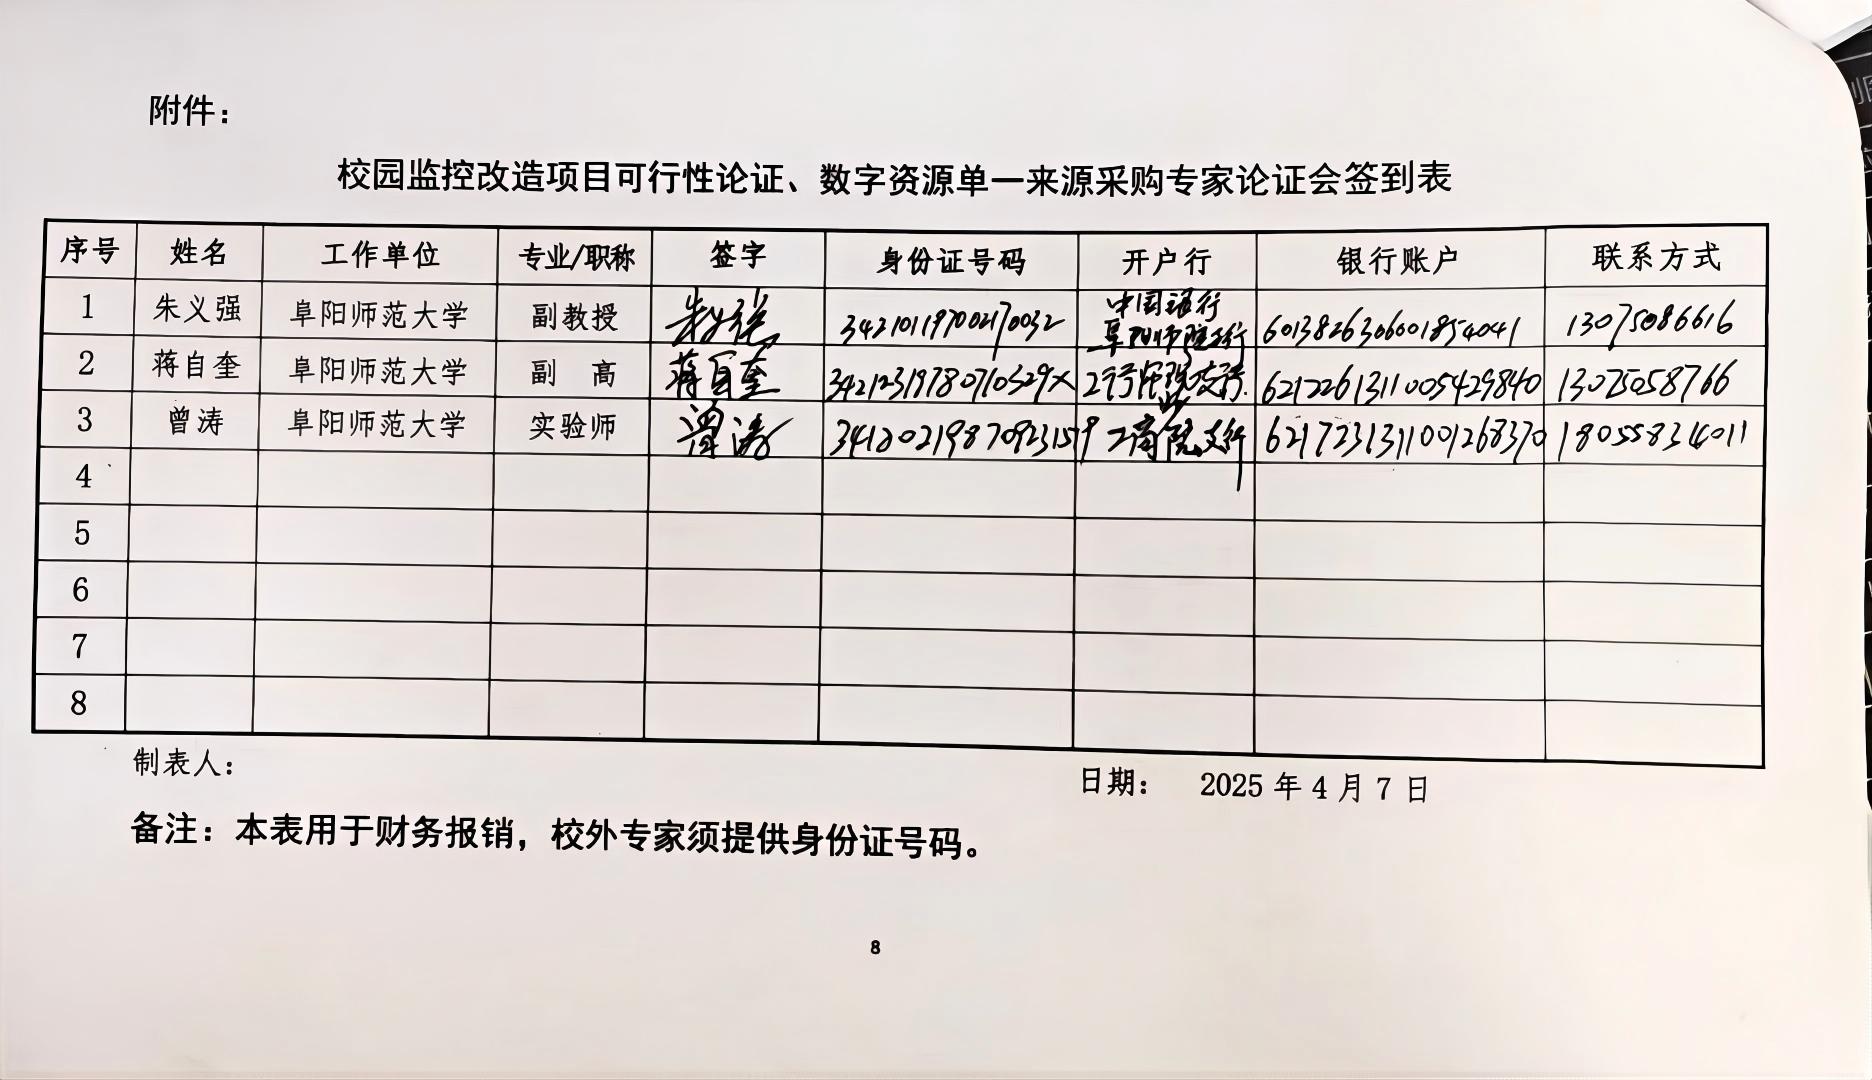 附件：
校园监控改造项目可行性论证、数字资源单一来源采购专家论证会签到表
序号 姓名 工作单位 专业/职称 签字 身份证号码 开户行 银行账户 联系方式
1 朱义强 阜阳师范大学 副教授 朱义强 342101197002170032 中国银行 阜阳师院支行 6013826306001854041 13075086616
2 蒋自奎 阜阳师范大学 副 高 蒋自奎 34212319780710329X 工行师院支行 6212261311005429840 13075058766
3 曾涛 阜阳师范大学 实验师 曾涛 支行 6217231311001268370 18055834011
4
5
6
7
8
制表人：
日期： 2025 年 4 月 7 日
备注：本表用于财务报销，校外专家须提供身份证号码。
8